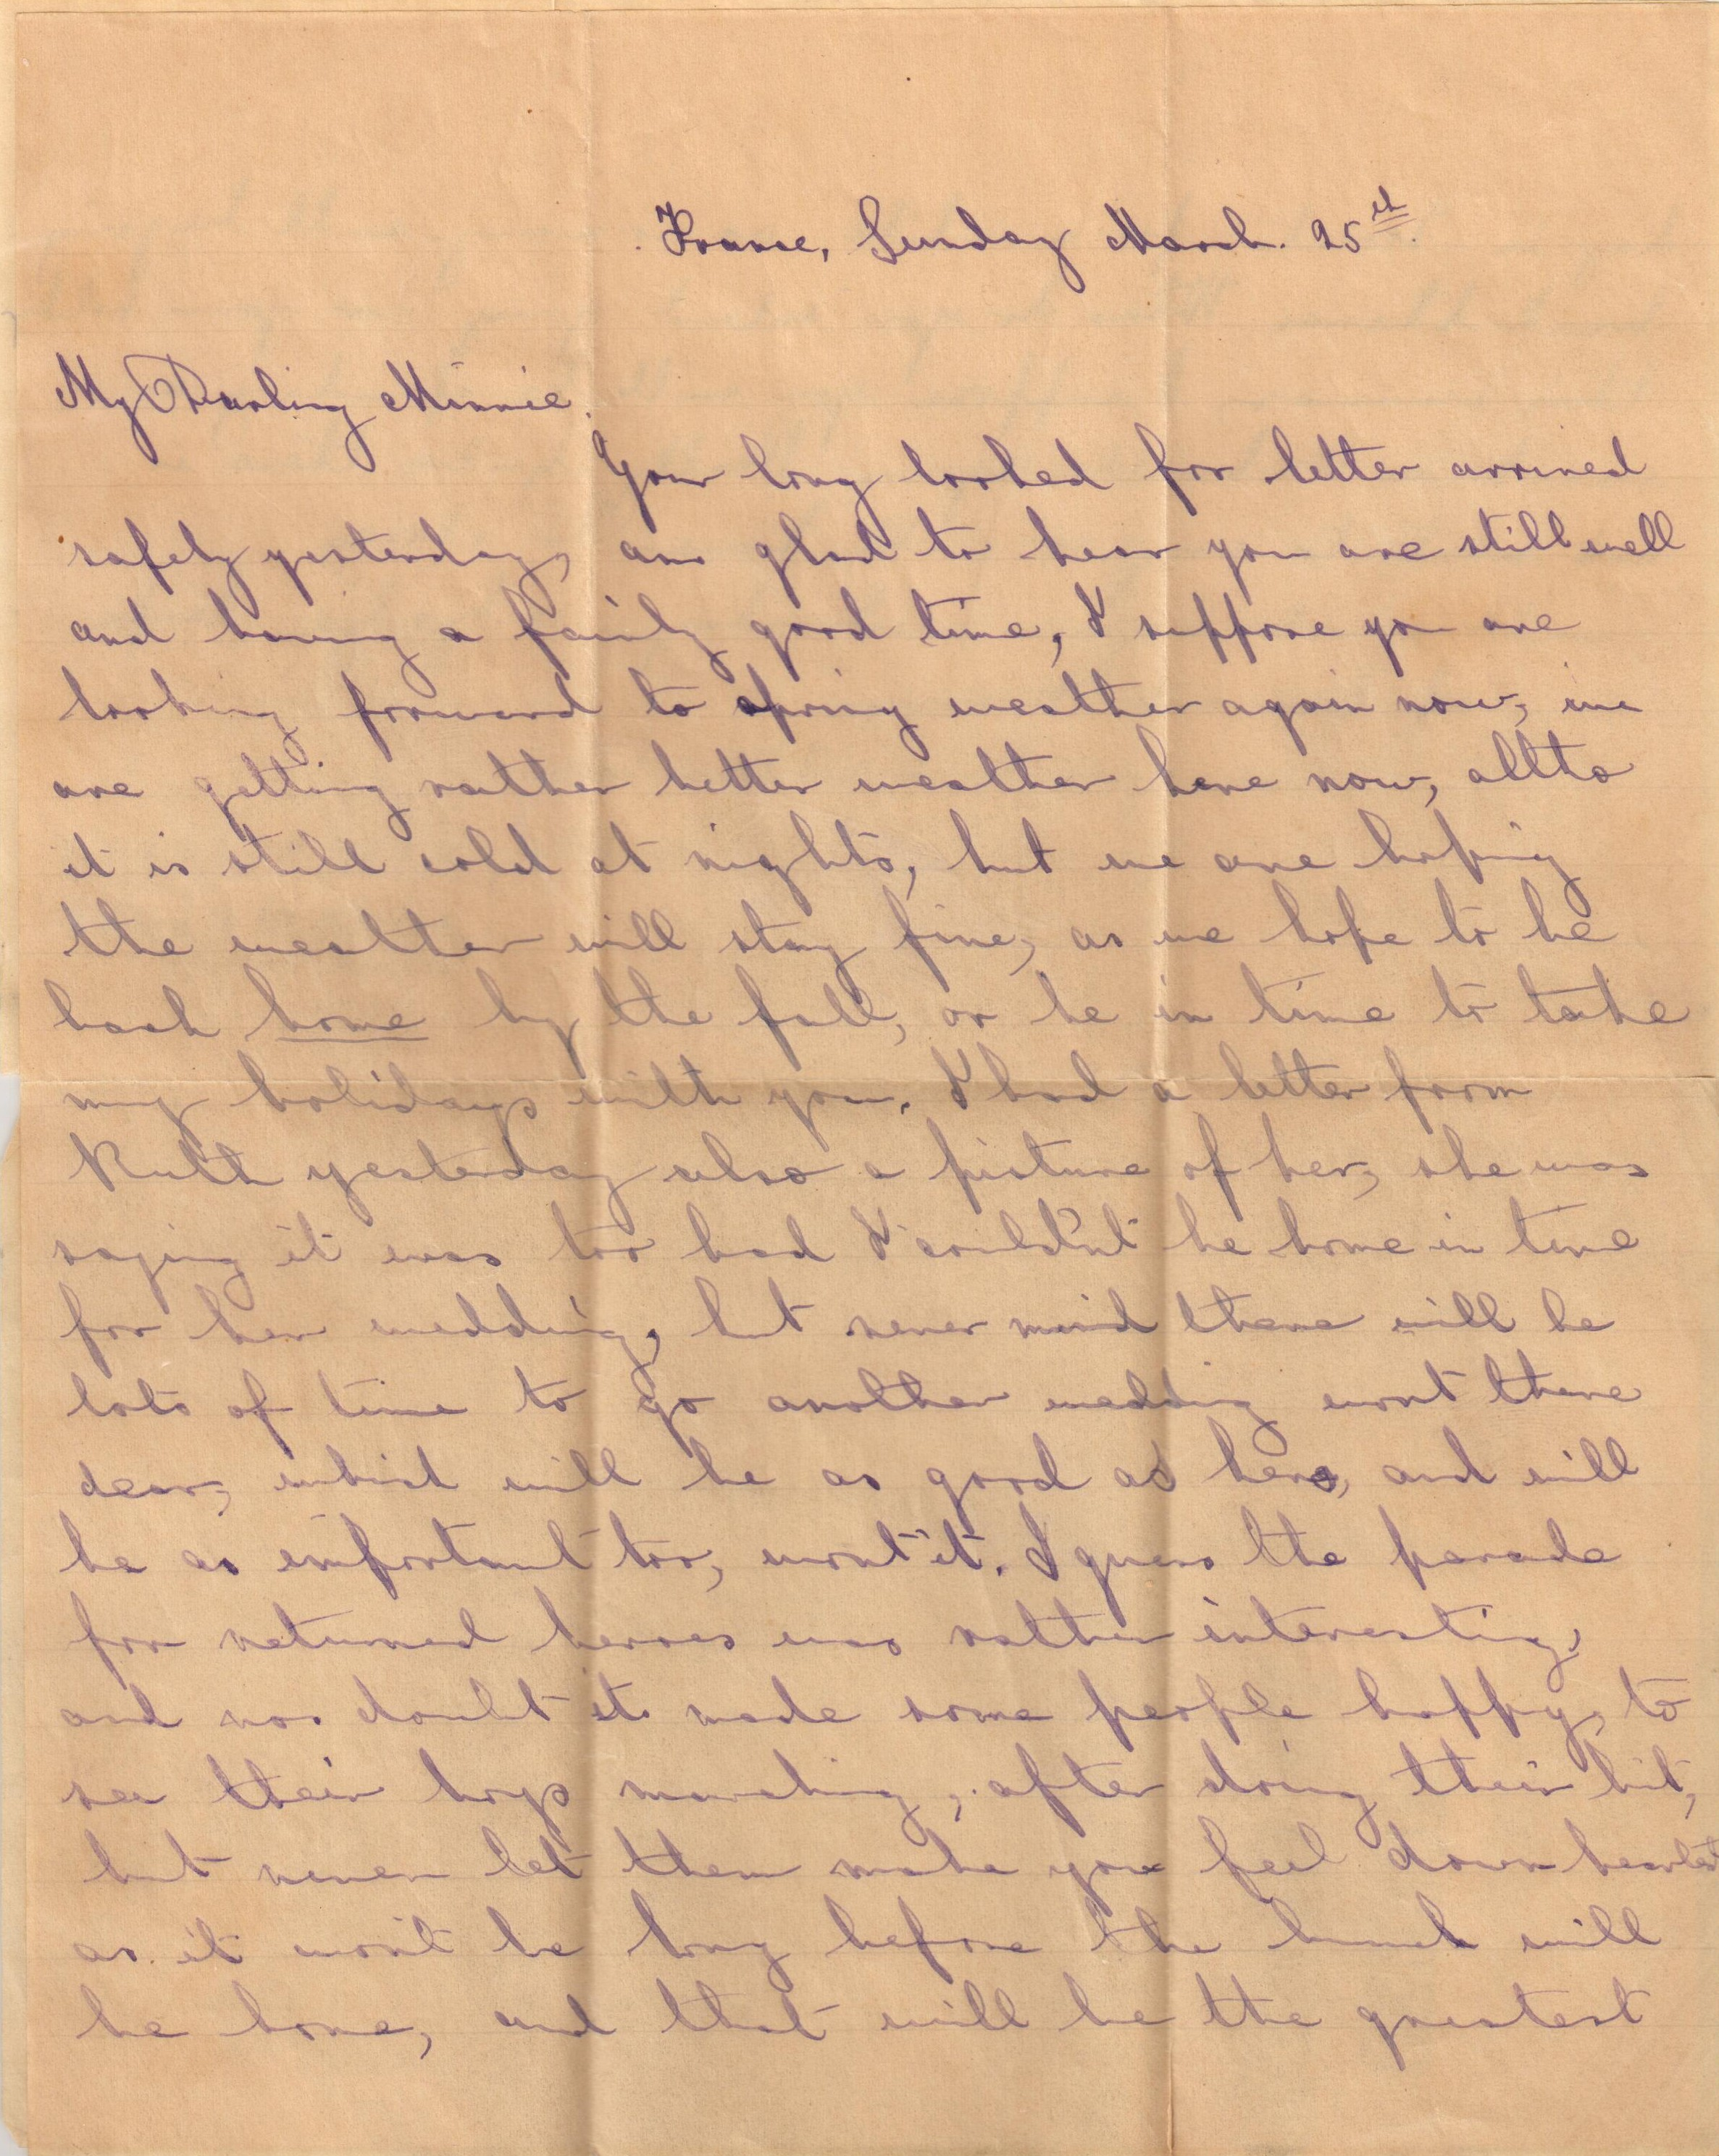 France, Sunday March. 25th.
My Darling Minnie.
Your long looked for letter arrived
safely yesterday, am glad to hear you are still well
and having a fairly good time, I suppose you are
looking forward to spring weather again now, we
are getting rather better weather here now, allto
it is still cold at nights, but we are hoping
the weather will stay fine, as we hope to be
back home by the fall, or be in time to take
my holidays with you. I had a letter from
Ruth yesterday also a picture of her, she was
saying it was too bad I could'nt be home in time
for her wedding, but never mind there will be
lots of time to go another wedding wont there
dear, which will be as good as hers, and will
be as important too, wont it. I guess the parade
for returned heroes was rather interesting,
and no doubt it made some people happy, to
see their boys marching, after doing their bit,
but never let them make you feel down hearted
as it won't be long before the bunch will
be home, and that will be the greatest